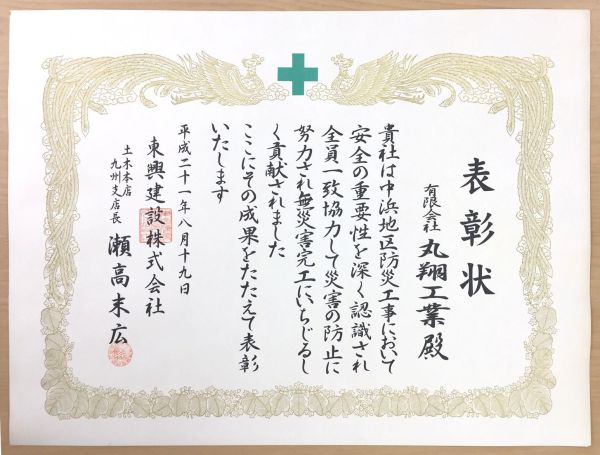 表彰状
有限会社 丸翔工業殿
貴社は中浜地区防災工事において
安全の重要性を深く認識され
全員一致協力して災害の防止に
努力され無災害完工にいちじるし
く貢献されました
ここにその成果をたたえて表彰
いたします
平成二十一年八月十九日
東興建設株式会社
土木本店
九州支店長
瀬高末広